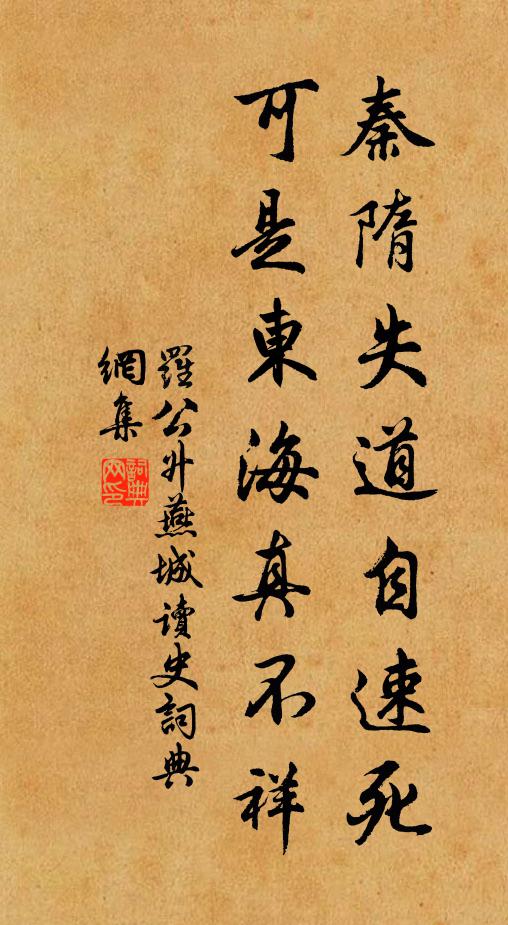 秦隋失道自速死
可是東海真不祥
羅公升燕城讀史詞典
網集
詞典
网印